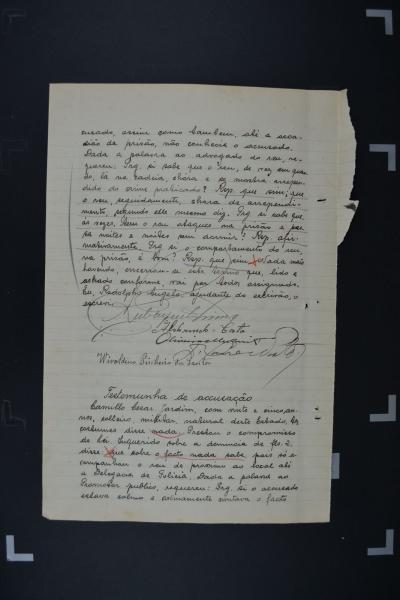 cusado, assim como tambem, até a occa-
sião da prisão, não conhecia o accusado.
Dada a palavra ao advogado do reu, re-
quereu: Prg. si sabe que o reu, de vez em quan-
do, lá na cadeia, chora e se mostra arrepen-
dido do crime praticado? Resp. que sim; que
o reu, seguidamente, chora de arrependi-
mento, segundo elle mesmo diz. Prg. si sabe que,
as vezes, vem o reu ataques na prisão e pas-
sa noites e noites sem dormir? Resp. affir-
mativamente. Prg. si o comportamento do reu
na prisão, é bom? Resp. que sim. Nada mais
havendo, encerrou-se este termo que, lido e
achado conforme, vae por todos assignado.
Eu, Rodolpho, ajudante do escrivão, o
escrevi.
Costa
Wivaldino Pinheiro do
Testemunha de accusação
Camillo Cezar Jardim, com vinte e cinco an-
nos, solteiro, militar, natural deste Estado. Aos
costumes disse nada. Prestou o compromisso
de lei. Inquerido sobre a denuncia de fls. 2,
disse que sobre o facto nada sabe pois só a-
companhou o reu de proximo ao local até
a Delegacia de Policia. Dada a palavra ao
Promotor publico, requereu: Prg. si o accusado
estava calmo e calmamente contava o facto